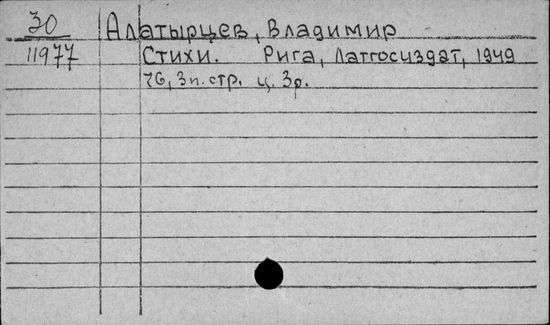 30
Алатырцев, Владимир
11977
Стихи. Рига, Латгосиздат, 1949
76, 3 п. стр. ц. 3р.